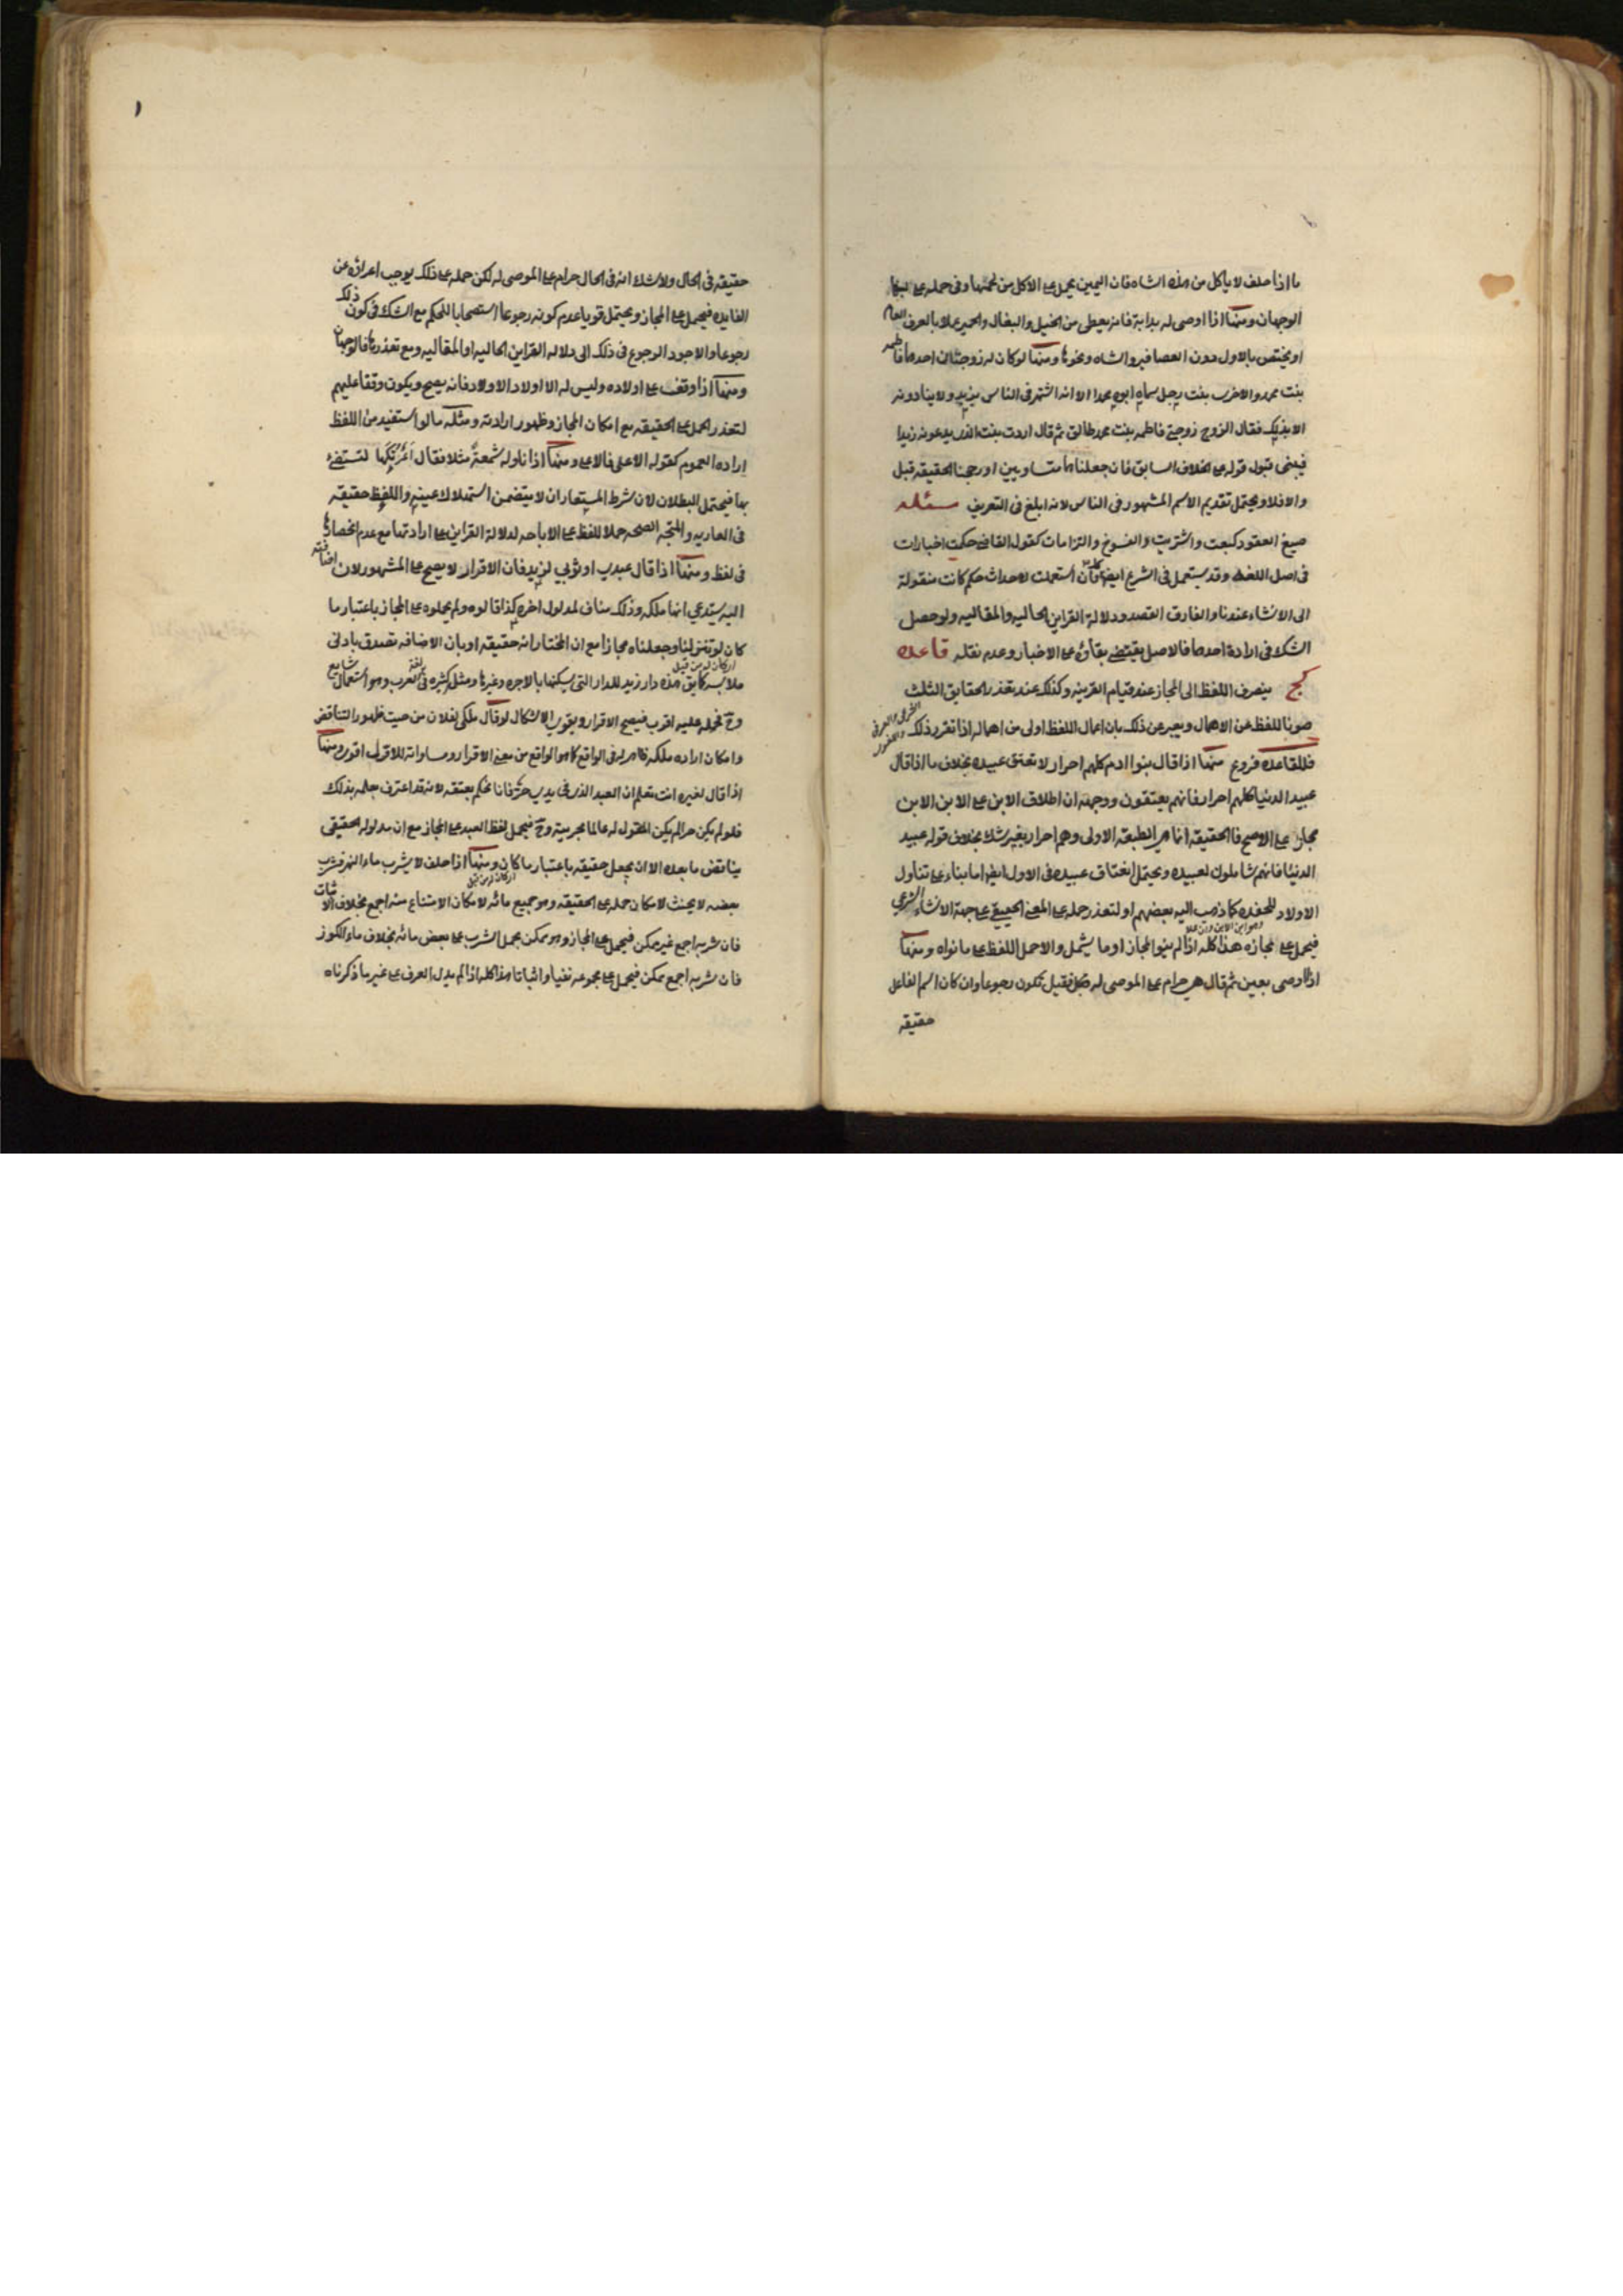 ما اذا حلف لا ياكل من هذه الشاه فان اليمين يحمل على الاكل من لحمها وفى حمله على لبنها
الوجهان ومنها اذا اوصى له بدابة فانه يعطى من الخيل والبغال والحمير عملا بالعرف العام
او يختص بالاول دون العصافير والشاه ونحوها ومنها لو كان له زوجتان احدهما فاطمه
بنت محمد والاخرى بنت رجل سماه ابوه محمدا الا انه اشتهر فى الناس بزيد ولا ينادونه
الا بذلك فقال الزوج زوجتى فاطمه بنت محمد طالق ثم قال اردت بنت الذى يدعونه زيدا
فيبنى قبول قوله على الخلاف السابق فان جعلناهما متساويين او رجحنا الحقيقه قبل
والا فلا ويحتمل تقديم الاسم المشهور فى الناس لانه ابلغ فى التعريف مسئله
صيغ العقود كبعت واشتريت والفسوخ والتزامات كقول القاضى حكمت اخبارات
فى اصل اللغه وقد يستعمل فى الشرع ايضا كذلك فان استعملت لاحداث حكم كانت منقولة
الى الانشاء عندنا والفارق القصد ودلالة القراين الحاليه والمقاليه ولو حصل
الشك فى ارادة احدهما فالاصل يقتضى بقاؤه على الاخبار وعدم نقله قاعده
كج ينصرف اللفظ الى المجاز عند قيام القرينه وكذلك عند تعذر الحقايق الثلث
صونا للفظ عن الاهمال ويعبر عن ذلك بان اعمال اللفظ اولى من اهماله اذا تقرر ذلك
فللقاعده فروع منها اذا قال بنوا ادم كلهم احرار لا تعتق عبيده بخلاف ما اذا قال
عبيد الدنيا كلهم احرار فانهم يعتقون ووجهه ان اطلاق الابن على الابن الابن
مجاز على الاصح فالحقيقه انما هى الطبقه الاولى وهم احرار بغير شك بخلاف قوله عبيد
الدنيا فانهم شاملون لعبيده ويحتمل انعتاق عبيده فى الاول ايضا اما بناء على تناول
الاولاد للحفده كما ذهب اليه بعضهم او لتعذر حمله على المعنى الحقيقى على جهة الانشاء الشرعى
فيحمل على مجازه هذا كله اذا لم ينوا المجاز او ما يشمل والا حمل اللفظ على ما نواه ومنها
اذا اوصى بعين ثم قال هى حرام على الموصى له فقيل تكون رجوعا وان كان اسم الفاعل
حقيقه
حقيقه فى الحال ولا شك انه فى الحال حرام على الموصى له لكن حمله على ذلك يوجب اعراؤه عن
الفايده فيحمل على المجاز ويحتمل قويا عدم كونه رجوعا استصحابا للحكم مع الشك فى كون ذلك
رجوعا والاجود الرجوع فى ذلك الى دلاله القراين الحاليه او المقاليه ومع تعذرها فالوجهان
ومنها اذا وقف على اولاده وليس له الا اولاد الاولاد فانه يصح ويكون وقفا عليهم
لتعذر الحمل على الحقيقه مع امكان المجاز وظهور ارادته ومثله ما لو استفيد من اللفظ
اراده العموم كقوله الاعلى فالاعلى ومنها اذا ناوله شمعة مثلا فقال اعرتكها لتستضئ
بها فيحتمل البطلان لان شرط المستعار ان لا يتضمن استهلاك عينه واللفظ حقيقه
فى العاريه والمتجه الصحه حملا للفظ على الاباحه لدلالة القراين على ارادتها مع عدم انحصارها
فى لفظ ومنها اذا قال عبدى او ثوبى لزيد فان الاقرار لا يصح على المشهور لان اضافته
اليه يستدعى انها ملكه وذلك مناف لمدلول اخره كذا قالوه ولم يحملوه على المجاز باعتبار ما
كان لو تنزلنا وجعلناه مجازا مع ان المختار انه حقيقه او بان الاضافه تصدق بادنى
ملابسه هذه دار زيد للدار التى يسكنها بالاجره وغيرها ومثل كثيره فى لغة العرب وهو استعمال شايع
وح فحمله عليه اقرب فيصح الاقرار ويقوى الاشكال لو قال ملكى لفلان من حيث ظهور التناقض
وامكان اراده ملكه ظاهرا فى الواقع كما هو الواقع من معنى الاقرار ومساواته للاول اقوى ومنها
اذا قال لغيره انت تعلم ان العبد الذى فى يدى حر فانا نحكم بعتقه لانه قد اعترف بعلمه بذلك
فلو لم يكن حرا لم يكن المقول له عالما بحريته وح فيحمل لفظ العبد على المجاز مع ان مدلوله الحقيقى
يناقض ما بعده الا ان يجعل حقيقه باعتبار ما كان ومنها اذا حلف لا يشرب ماء النهر فشرب
بعضه لا يحنث لامكان حمله على الحقيقه وهو جميع مائه لامكان الامتناع منه اجمع بخلاف الاثبات
فان شربه اجمع غير ممكن فيحمل على المجاز وهو ممكن بحمل الشرب على بعض مائه بخلاف ماء الكوز
فان شربه اجمع ممكن فيحمل على مجموعه نفيا واثباتا هذا كله اذا لم يدل العرف على غير ما ذكرناه